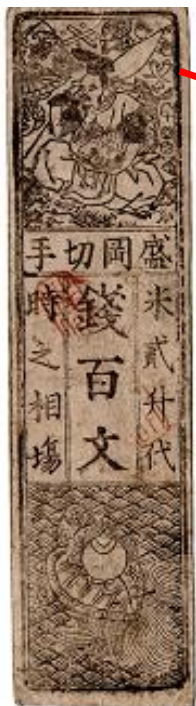 盛岡切手
米貳升代
錢百文
時之相塲